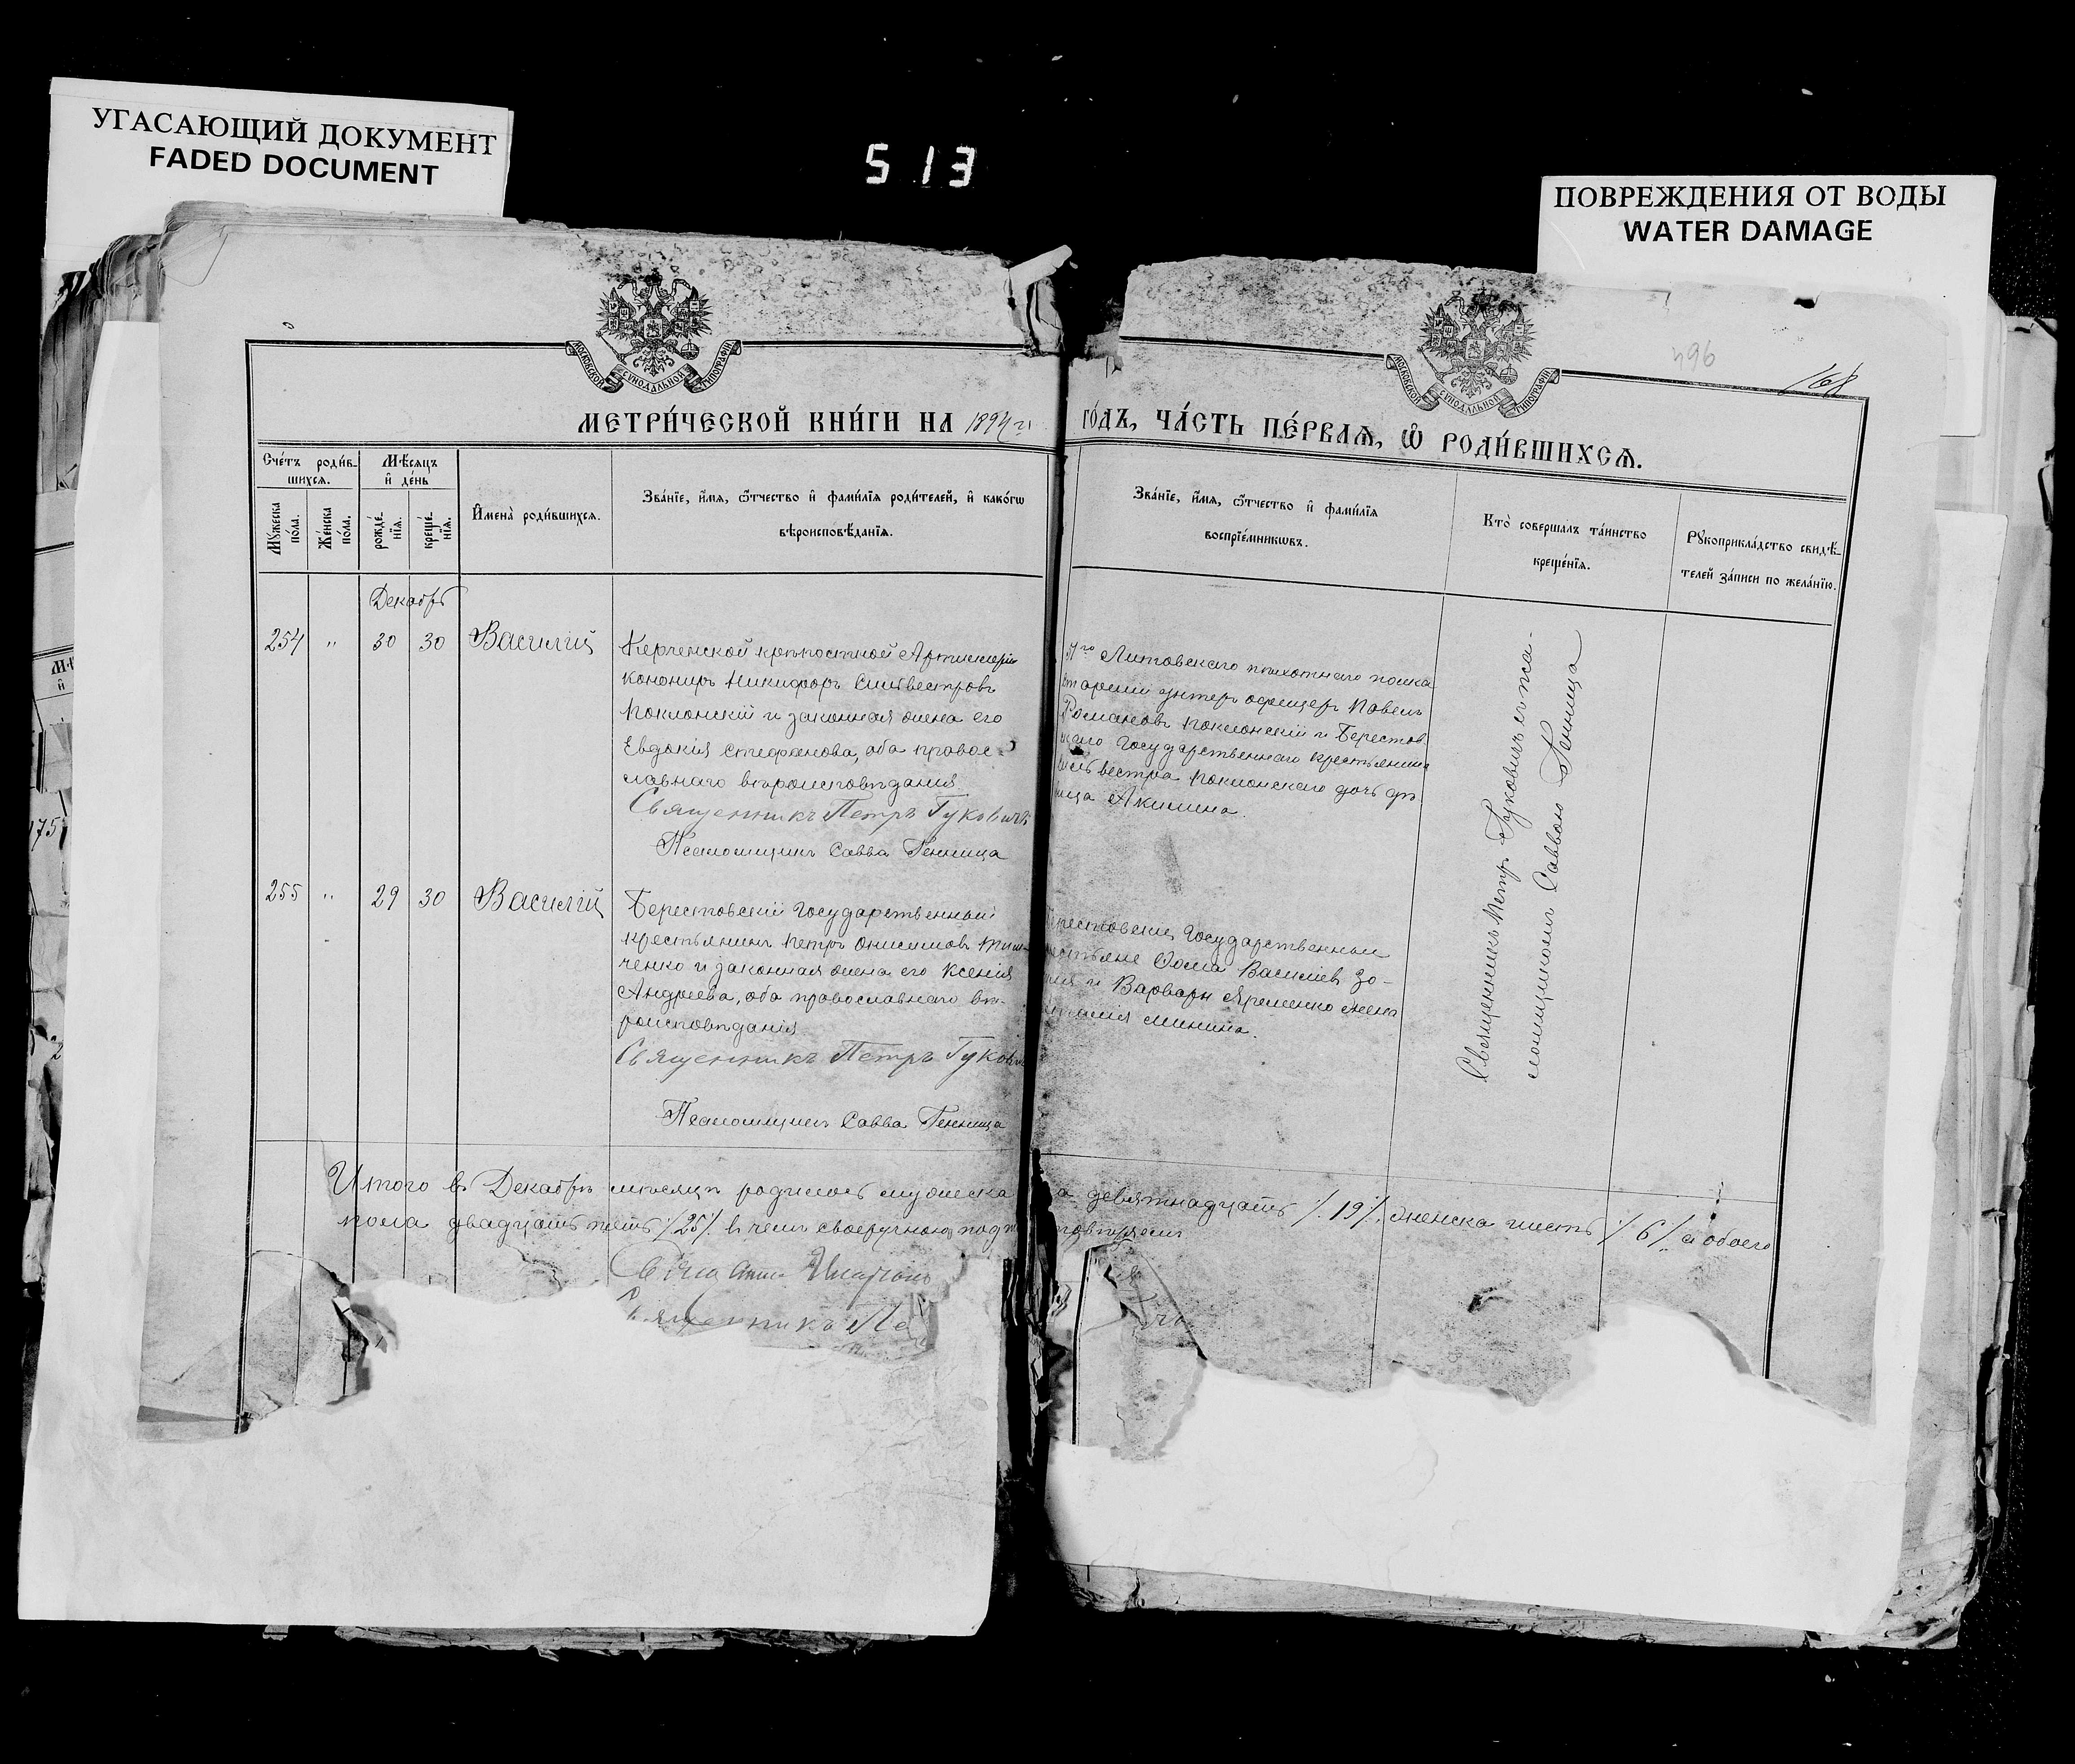 УГАСАЮЩИЙ ДОКУМЕНТ
FADED DOCUMENT
513
ПОВРЕЖДЕНИЯ ОТ ВОДЫ
WATER DAMAGE
МОСКОВСКОЙ СѴНОДАЛЬНОЙ ТИПОГРАФІИ
МОСКОВСКОЙ СѴНОДАЛЬНОЙ ТИПОГРАФІИ
496
168
МЕТРИ́ЧЕСКОЙ КНИ́ГИ НА 1894 г.
ГО́ДЪ, ЧА́СТЬ ПЕ́РВАѦ, Ѽ РОДИ́ВШИХСѦ.
Сче́тъ роди́в-
шихсѧ.
Мѣ́сѧцъ
и҆ де́нь
Мꙋ́жеска
по́ла.
Же́нска
по́ла.
рожде́-
нїѧ.
креще́-
нїѧ.
И҆мена̀ роди́вшихсѧ.
Зва́нїе, и҆́мѧ, ѻ҆́тчество и҆ фами́лїѧ роди́телей, и҆ како́гѡ
вѣроисповѣ́данїѧ.
Зва́нїе, и҆́мѧ, ѻ҆́тчество и҆ фами́лїѧ
воспрїе́мникѡвъ.
Кто̀ соверша́лъ та́инство
креще́нїѧ.
Рꙋкоприкла́дство свидѣ́-
телей за́писи по жела́нїю.
Декабрь
254 " 30 30 Василій
Керченской крѣпостной Артиллеріи
канониръ Никифоръ Сильвестровъ
Поклонскій и законная жена его
Евдокія Стефанова, оба правос-
лавнаго вѣроисповѣданія
Священникъ Петръ Гуковичъ
Псаломщикъ Савва Генница
Литовскаго пѣхотнаго полка
старшій унтеръ офицеръ Павелъ
Романовъ Поклонскій и Берестов
скаго Государственнаго крестьянина
Сильвестра Поклонскаго дочь дѣ
вица Акилина.
Священникъ Петръ Гуковичъ съ пса-
ломщикомъ Саввою Генница
255 " 29 30 Василій
Берестовскій Государственный
крестьянинъ Петръ Онисимовъ Тим-
ченко и законная жена его Ксенія
Андреева, оба православнаго вѣ-
роисповѣданія
Священникъ Петръ Гукович
Псаломщикъ Савва Генница
Берестовскіе Государственные
крестьяне Ѳома Василіев Зо-
и Варвары Яременко жена
Минина.
Итого въ Декабрѣ мѣсяцѣ родилось мужеска
а девятнадцать /.19/. женска шесть /.6/. а обоего
пола двадцать пять /.25/. въ чемъ своеручною подп
Священникъ Пе